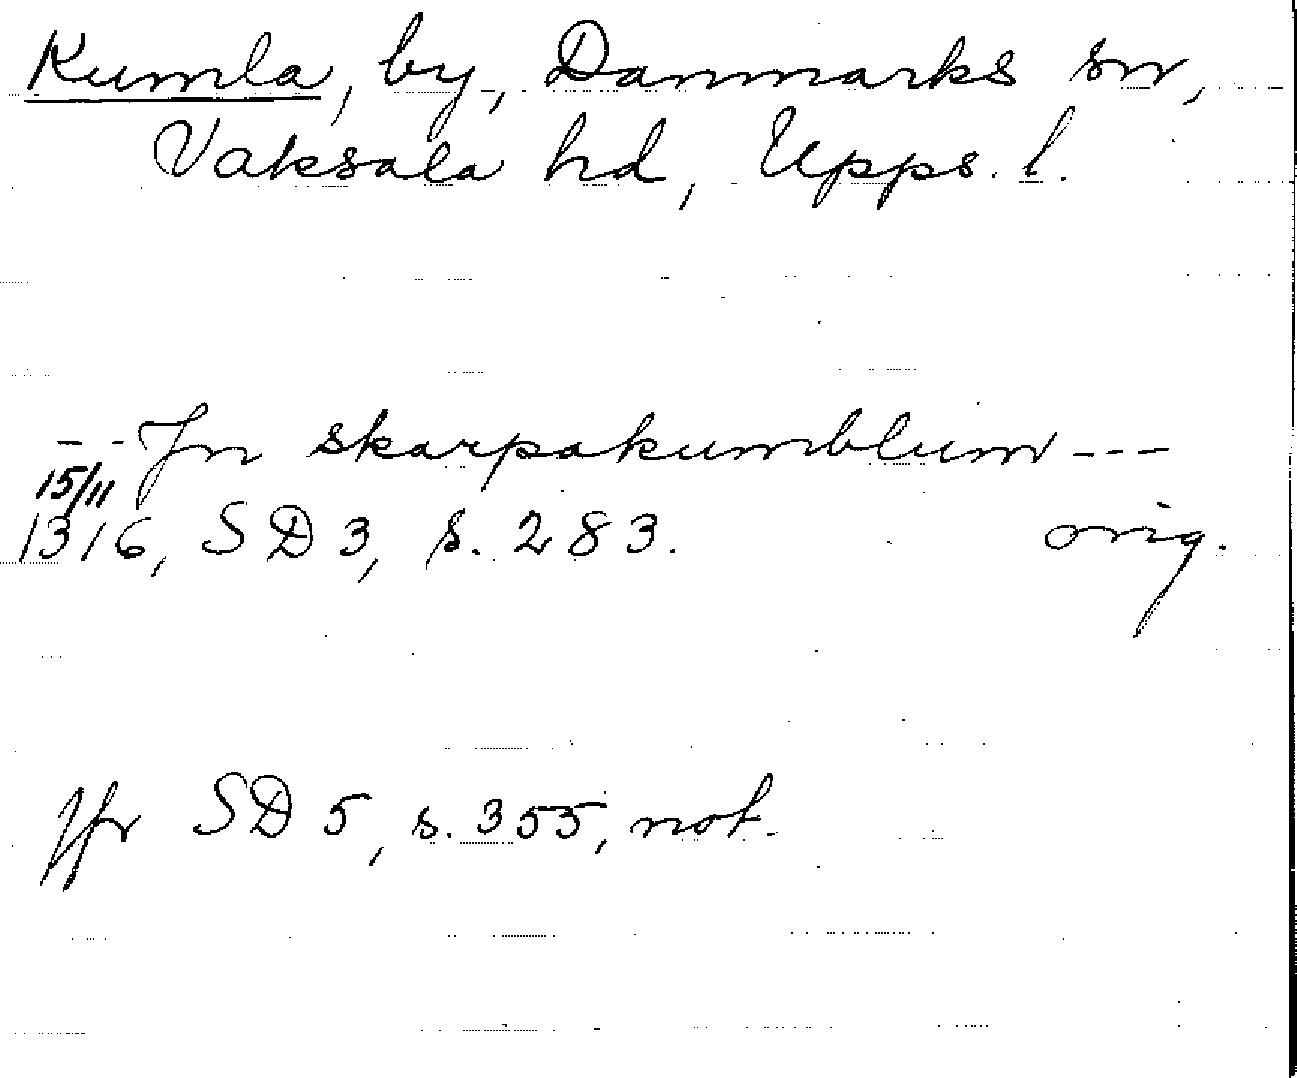 Kumla, by, Danmarks sn,
Vaksala hd, Upps. l.
- - Jn skarpakumblum ---
15/11
1316, SD 3, s. 283. orig.
Jfr SD 5, s. 355, not.